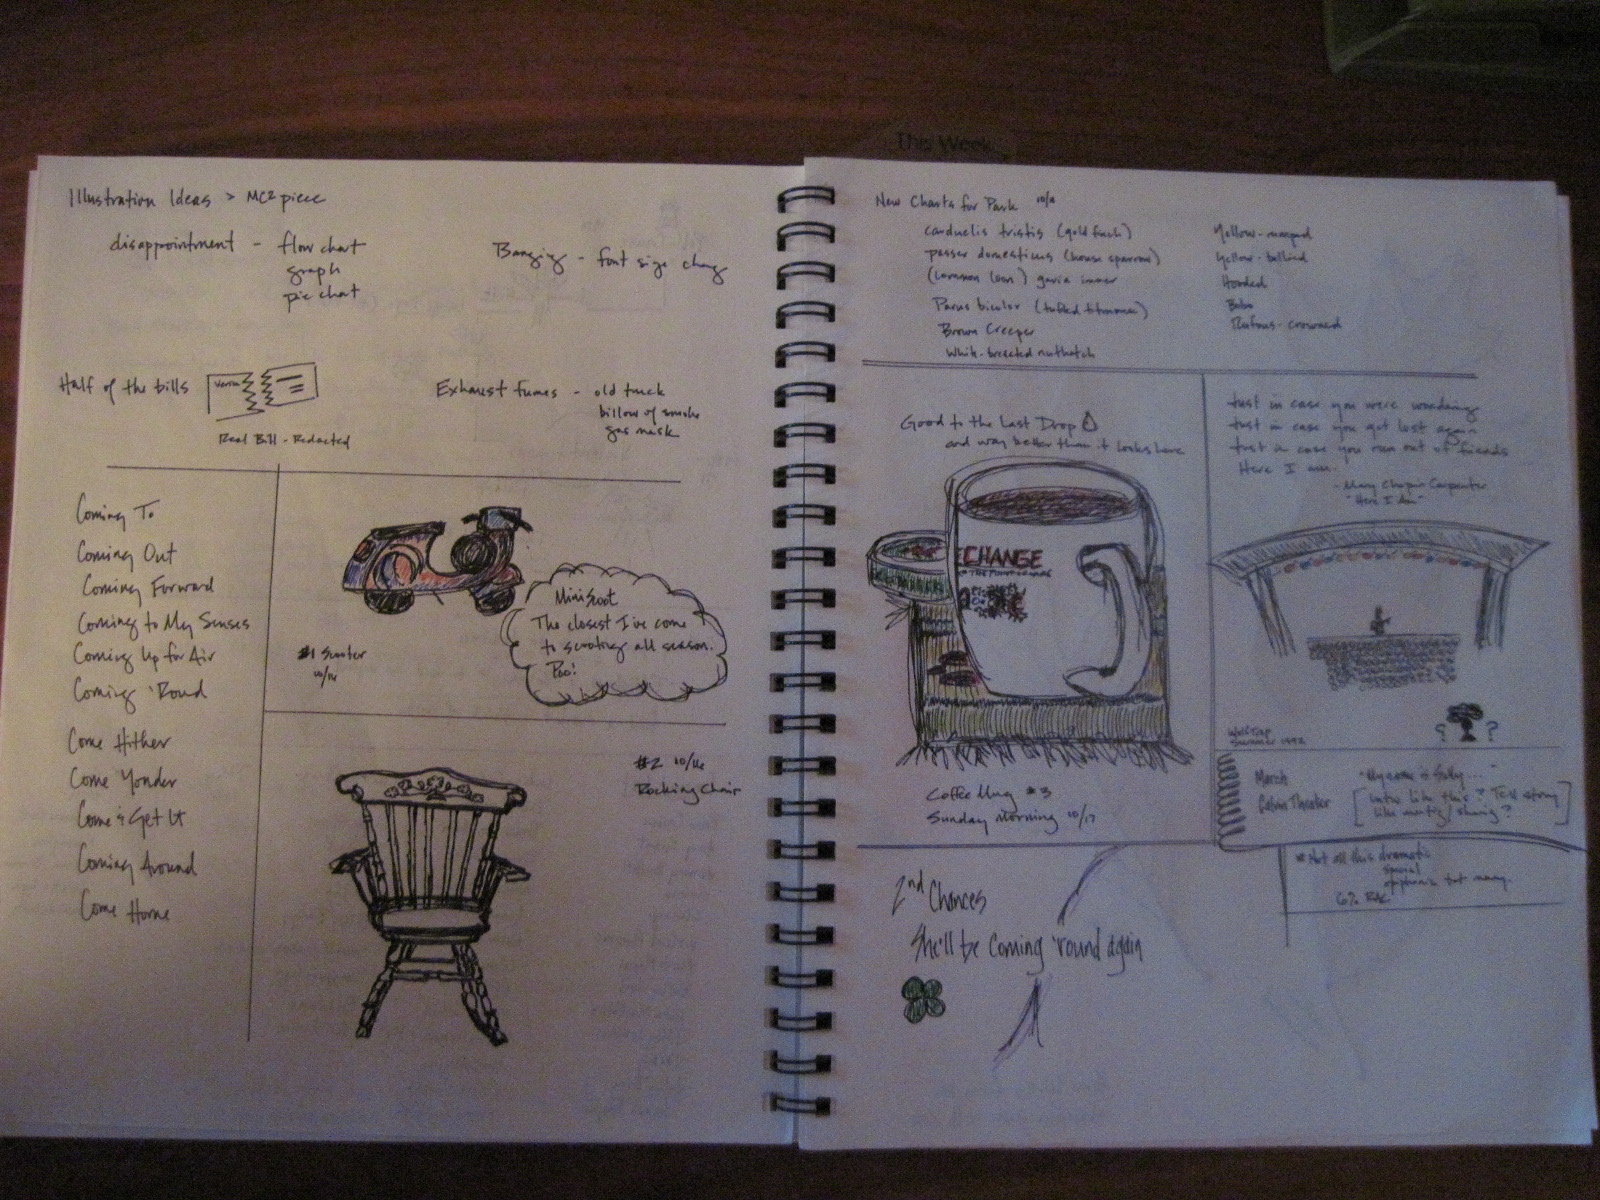 Illustration Ideas > MC2 piece
disappointment - flow chart
graph
pie chart
Banging - font size chang
Half of the bills
Real Bill - Redacted
Exhaust fumes - old truck
billow of smoke
gas mask
Coming To
Coming Out
Coming Forward
Coming to My Senses
Coming Up for Air
Coming 'Round
Come Hither
Come Yonder
Come & Get It
Coming Around
Come Home
#1 Scooter
10/14
MiniScoot
The closest I've come
to scooting all season.
Poo!
#2 10/16
Rocking Chair
This Week
New Charts for Park 10/8
carduelis tristis (gold finch)
passer domesticus (house sparrow)
(common loon) gavia immer
Parus bicolor (tufted titmouse)
Brown Creeper
White-breasted nuthatch
Yellow-rumped
Yellow-bellied
Hooded
Rufous-crowned
Good to the Last Drop
and way better than it looks here
CHANGE
Coffee Mug #3
Sunday Morning 10/17
Just in case you were wondering
Just in case you got lost again
Just in case you run out of friends
Here I am.
- Mary Chapin Carpenter
"Here I Am"
Wolf Trap
Summer 1992
? ?
March
Calvin Theater
"My name is Sally..."
intro like this? Tell story
like meeting/sharing?
* Not all this dramatic
special
but many.
2nd Chances
She'll be Coming 'round again